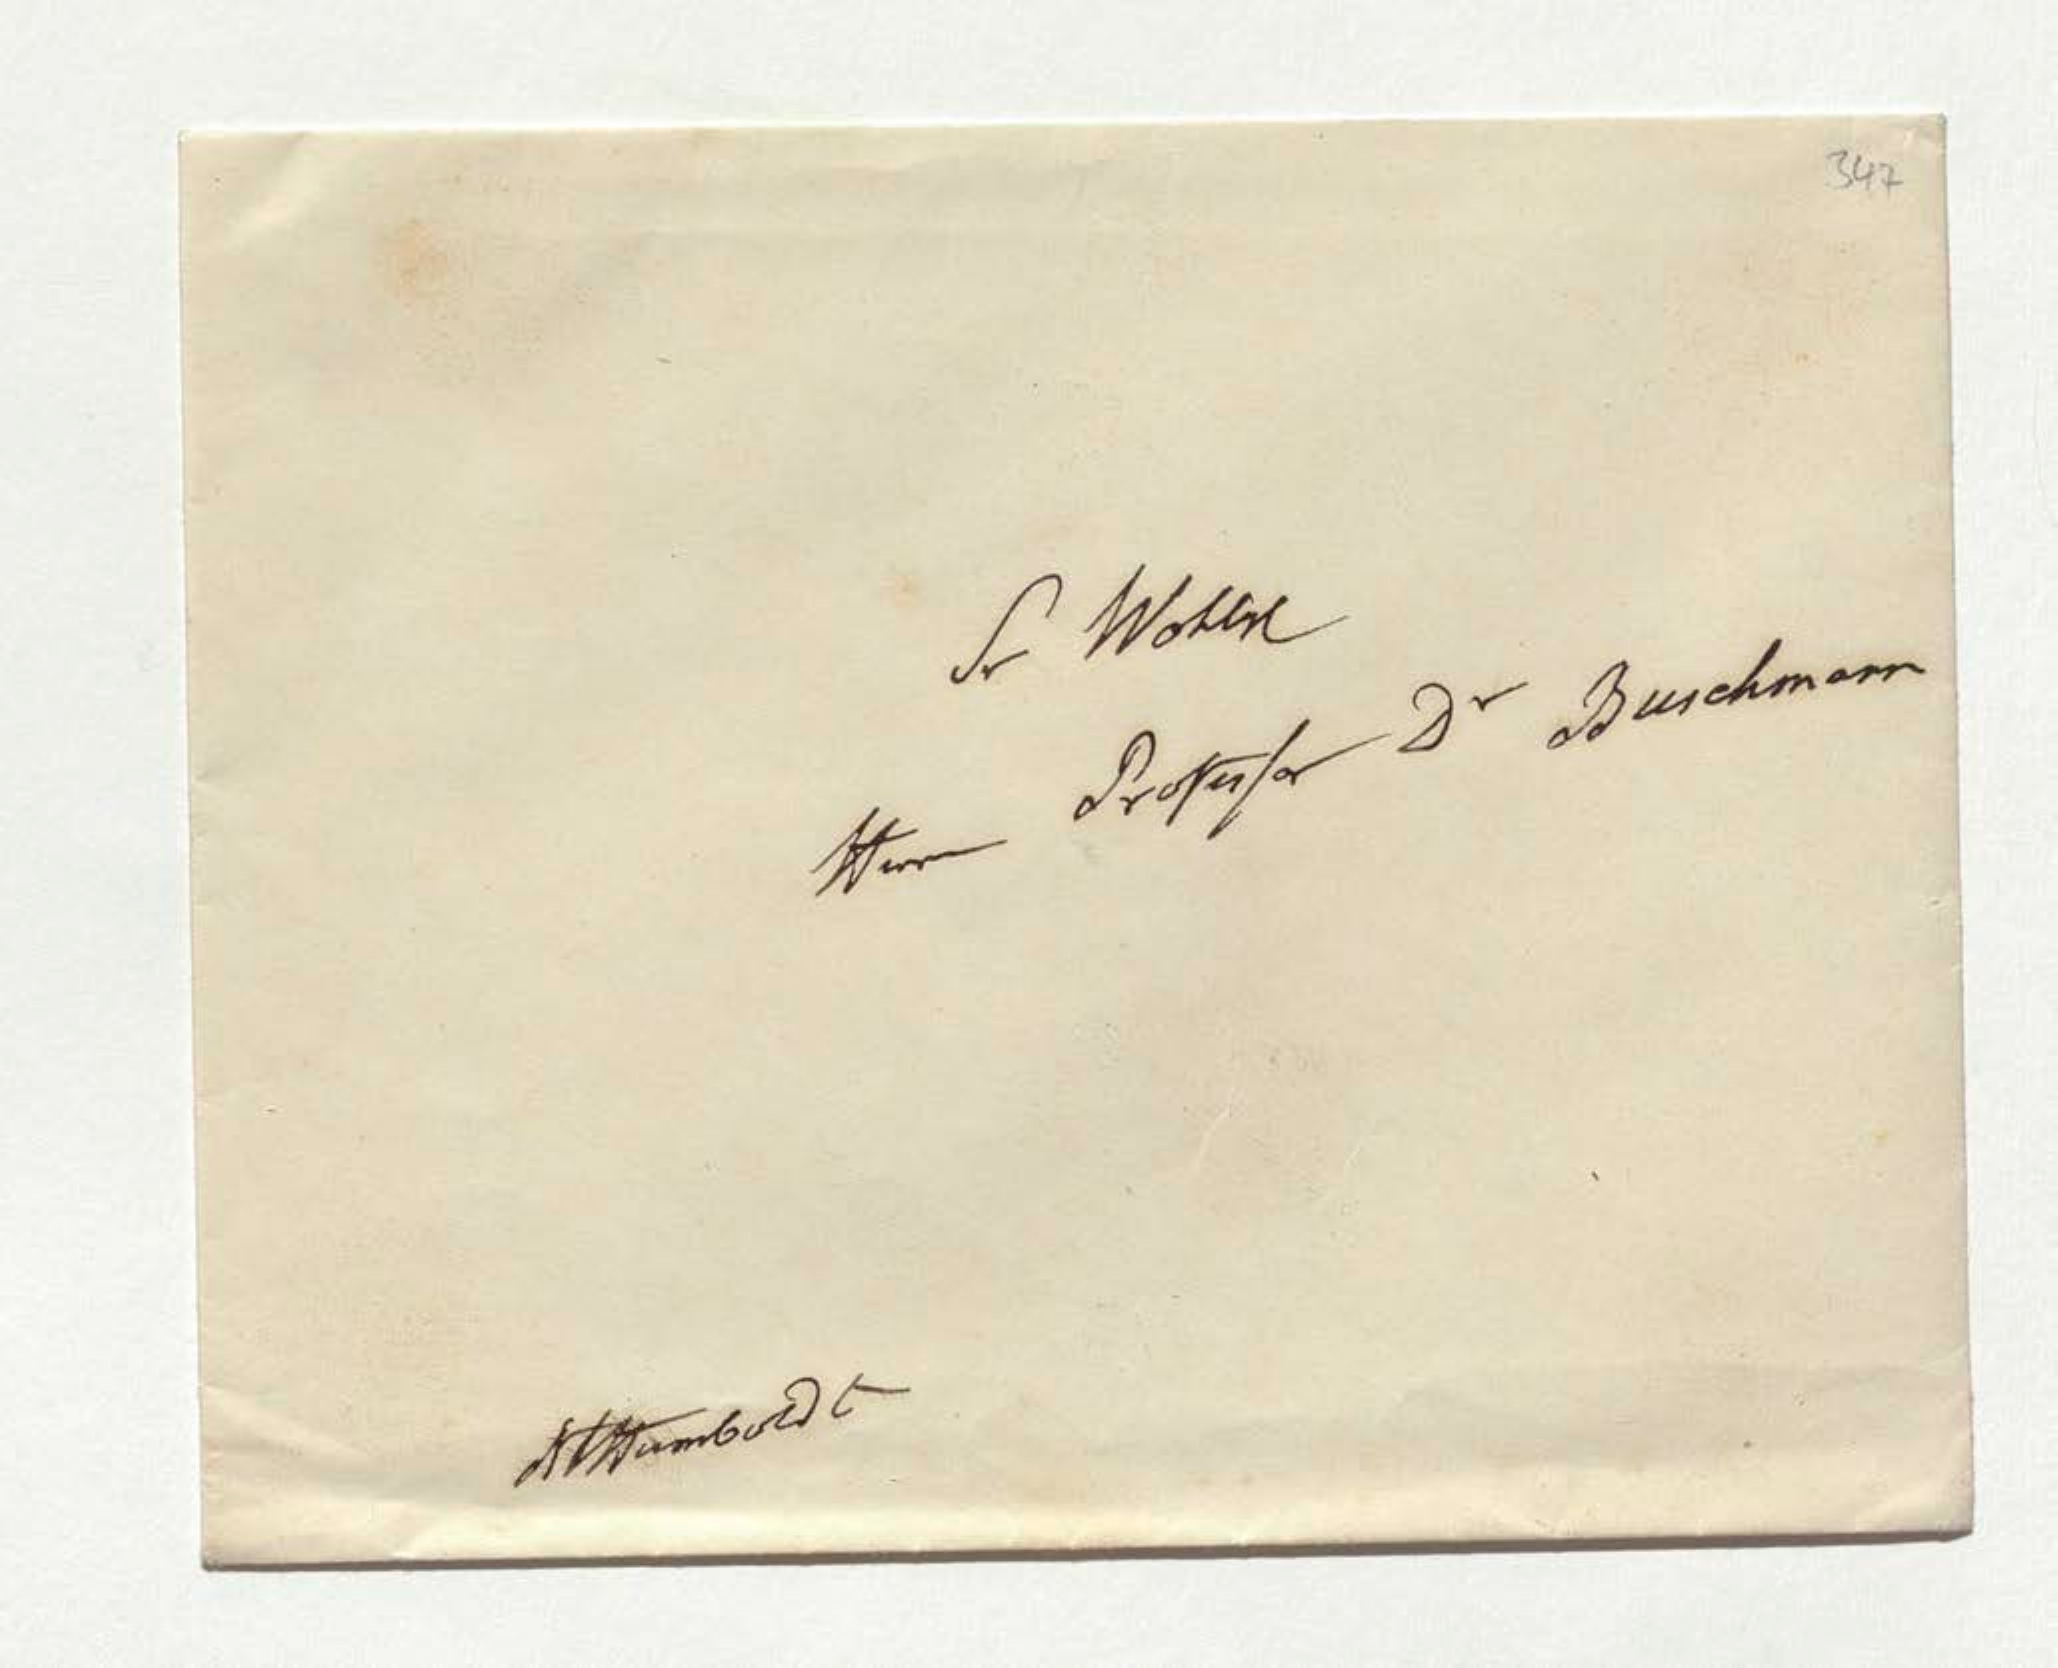 347
Sr Wohlgb
Herrn Professor Dr Buschmann
AvHumboldt